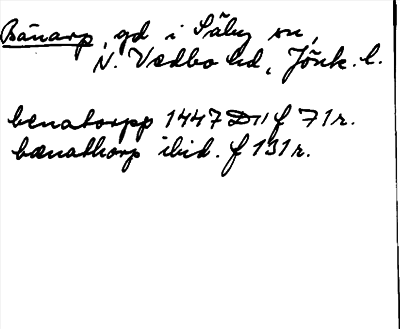 Bänarp, gd i Säby sn,
N. Vedbo hd, Jönk. l.
benatorpp 1447 D11 f 71r.
bænathorp ibid. f 131r.